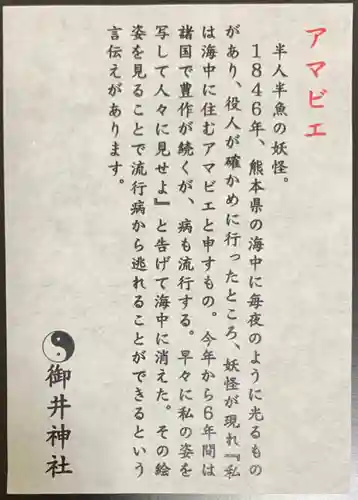 アマビエ
半人半魚の妖怪。
1846年、熊本県の海中に毎夜のように光るもの
があり、役人が確かめに行ったところ、妖怪が現れ『私
は海中に住むアマビエと申すもの。今年から6年間は
諸国で豊作が続くが、病も流行する。早々に私の姿を
写して人々に見せよ』と告げて海中に消えた。その絵
姿を見ることで流行病から逃れることができるという
言伝えがあります。
御井神社